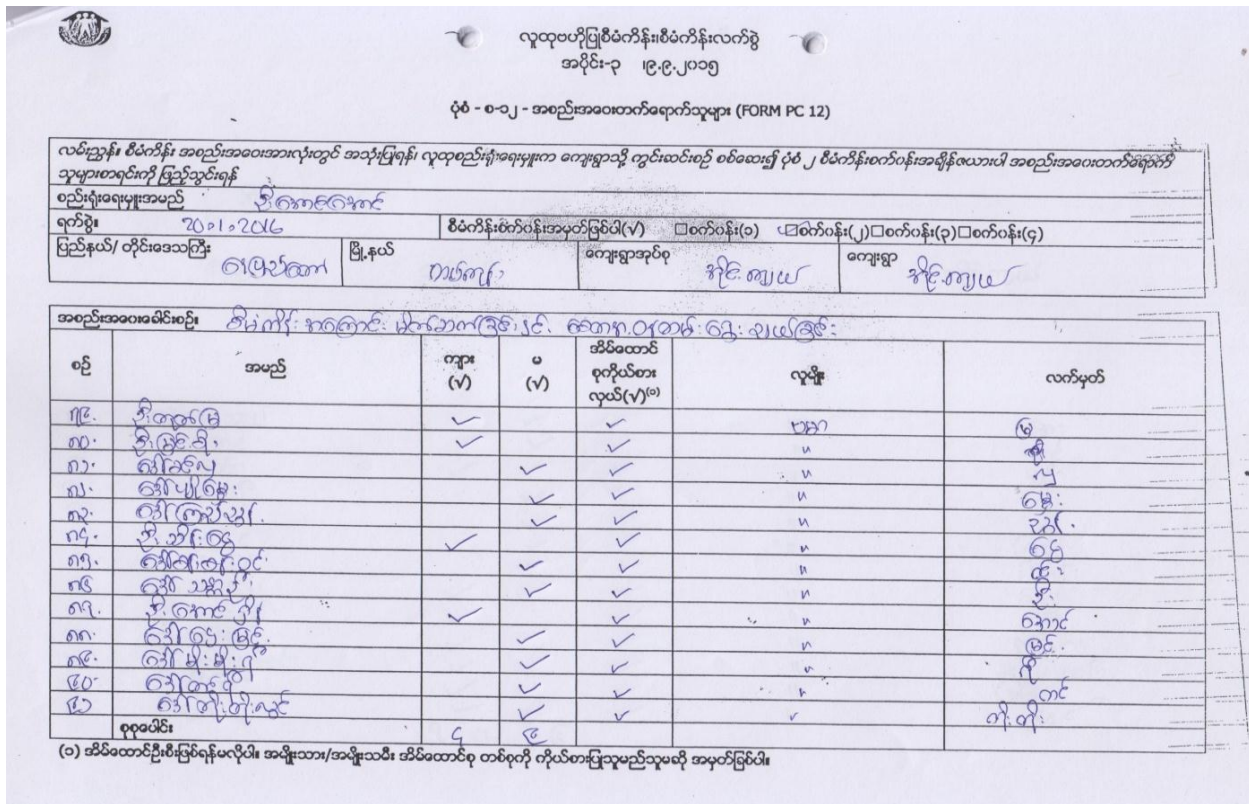 လူထုဗဟိုပြုစီမံကိန်း၊စီမံကိန်းလက်စွဲ
အပိုင်း-၃ ၊၉.၉.၂၀၁၅
ပုံစံ - စ-၁၂ - အစည်းအဝေးတက်ရောက်သူများ (FORM PC 12)
လမ်းညွှန်။ စီမံကိန်း အစည်းအဝေးအားလုံးတွင် အသုံးပြုရန်၊ လူထုစည်းရုံးရေးမှူးက ကျေးရွာသို့ ကွင်းဆင်းစဉ် စစ်ဆေး၍ ပုံစံ ၂ စီမံကိန်းစက်ပန်းအချိန်ဇယားပါ အစည်းအဝေးတက်ရောက်
သူများစာရင်းကို ဖြည့်သွင်းရန်
စည်းရုံးရေးမှူးအမည် ဦးအောင်အောင်
ရက်စွဲ။ 20.1.2016 စီမံကိန်းစက်ပန်းအမှတ်ဖြစ်ပါ(√) □စက်ပန်း(၁) ☑စက်ပန်း(၂)□စက်ပန်း(၃)□စက်ပန်း(၄)
ပြည်နယ်/ တိုင်းဒေသကြီး နေပြည်တော် မြို့နယ် တပ်ကုန်း ကျေးရွာအုပ်စု အိုင်းကျယ် ကျေးရွာ အိုင်းကျယ်
အစည်းအဝေးခေါင်းစဉ်။ စီမံကိန်းအကြောင်း မိတ်ဆက်ခြင်းနှင့် စေတနာ့ဝန်ထမ်း ရွေးချယ်ခြင်း
စဉ် အမည် ကျား (√) မ (√) အိမ်ထောင်စုကိုယ်စားလှယ်(√)⁽¹⁾ လူမျိုး လက်မှတ်
၇၉. ✓ ✓ ဗမာ မြ
၈၀. ဦးမြင့်စိုး ✓ ✓ "
၈၁. ✓ ✓ " လှ
၈၂. ဒေါ်ပျိုမွှေး ✓ ✓ " မွှေး
၈၃. ဒေါ်ကြည်ညွန့် ✓ ✓ " ညွန့်
၈၄. ဦးသိန်းငွေ ✓ ✓ " ငွေ
၈၅. ✓ ✓ "
၈၆ ✓ ✓ " ဦး
၈၇. ✓ ✓ " အောင်
၈၈. ဒေါ်ဌေးမြင့် ✓ ✓ " မြင့်
၈၉. ✓ ✓ "
၉၀. ✓ ✓ " တင်
၉၁ ဒေါ်တိုးတိုးလွင် ✓ ✓ " တိုးတိုး
စုစုပေါင်း ၄ ၉
(၁) အိမ်ထောင်ဦးစီးဖြစ်ရန်မလိုပါ။ အမျိုးသား/အမျိုးသမီး အိမ်ထောင်စု တစ်စုကို ကိုယ်စားပြုသူမည်သူမဆို အမှတ်ခြစ်ပါ။